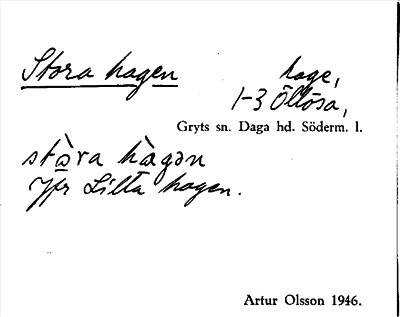 Stora hagen
hage,
1-3 Öllösa,
Gryts sn. Daga hd. Söderm. l.
stòra hàgən
Jfr Lilla hagen.
Artur Olsson 1946.